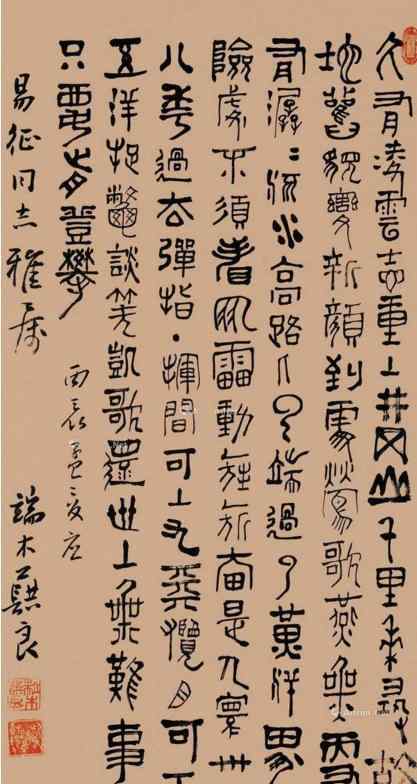 久有凌雲志重上井岡山千里來尋故
地舊貌變新顏到處鶯歌燕舞更
有潺〻流水高路入雲端過了黃洋界
險處不須看風雷動旌旂奮是人寰卅
八年過去彈指一揮間可上九天攬月可下
五洋捉鼈談笑凱歌還世上無難事
只要肯登攀
丙辰孟夏
易征同志雅屬
端木蕻良